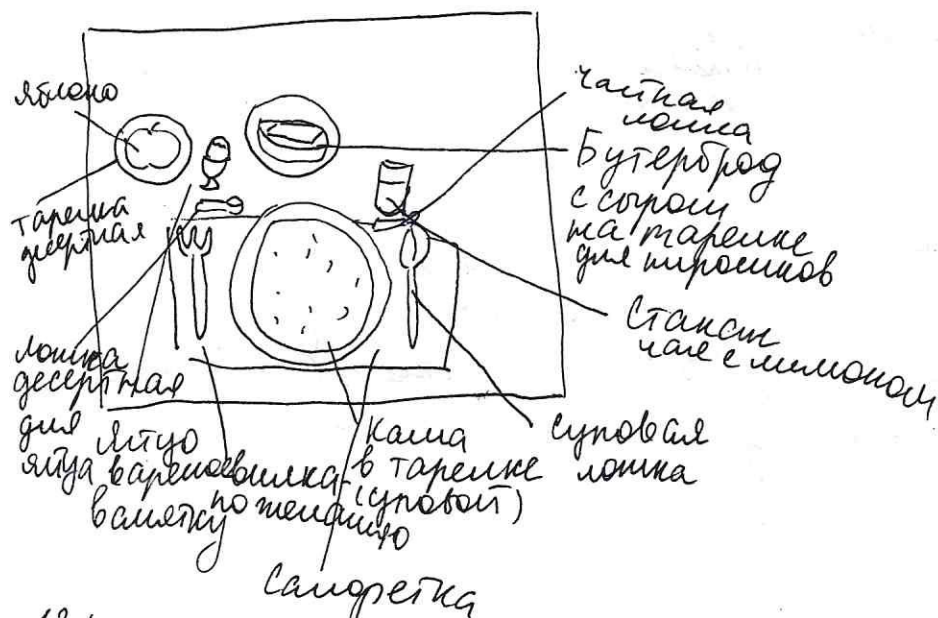 яблоко
тарелка
десертная
ложка
десертная
для
яйца
Яйцо
вареное
всмятку
вилка-
по желанию
Каша
в тарелке
(суповой)
Салфетка
суповая
ложка
Стакан
чая с лимоном
чайная
ложка
Бутерброд
с сыром
на тарелке
для пирожков